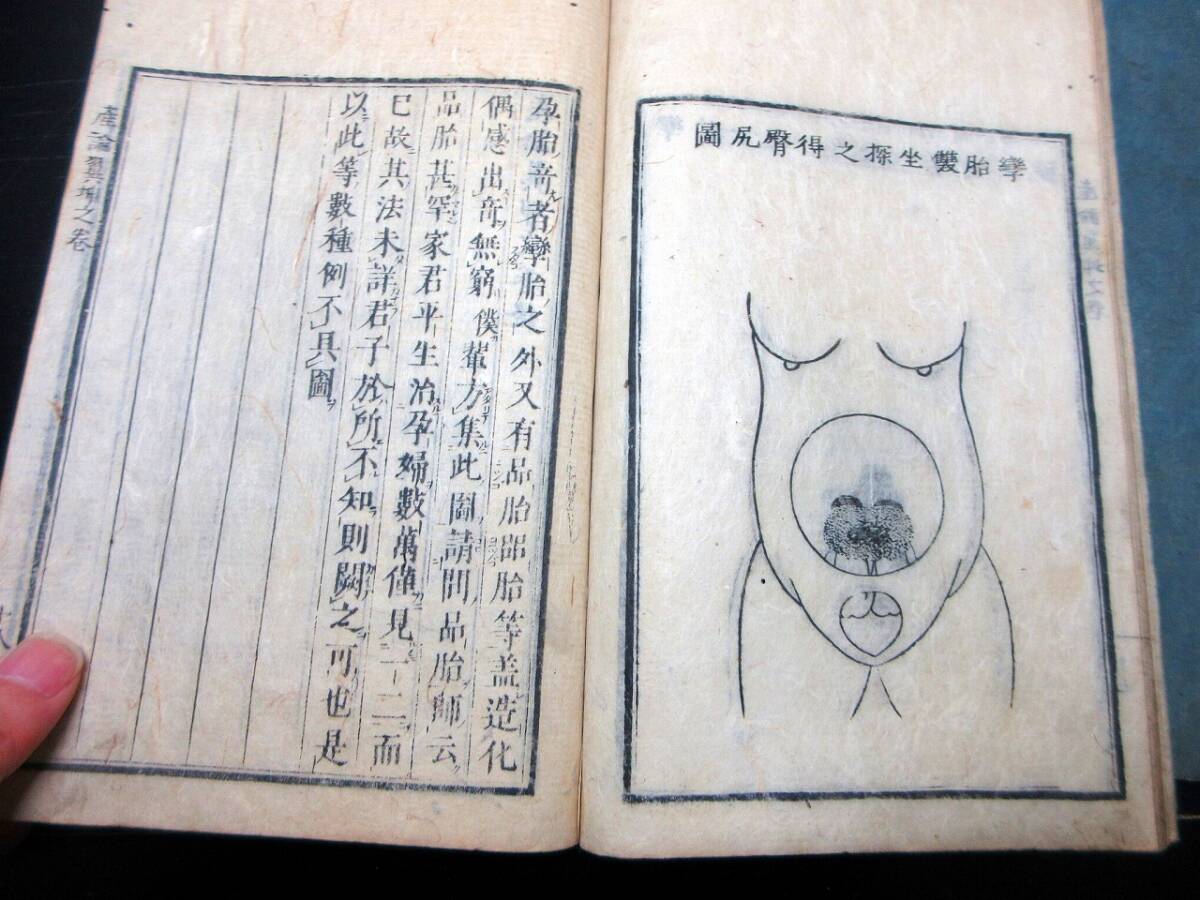 孿胎雙坐探之得臀尻圖
孕胎竒者孿胎之外又有品胎㗊胎等盖造化
偶感出竒無窮僕輩方集此圖請問品胎師云
品胎甚罕家君平生治孕婦數萬僅見一二而
已故其法未詳君子於所不知則闕之可也是
以此等數種例不具圖
産論翼坤之卷
十八